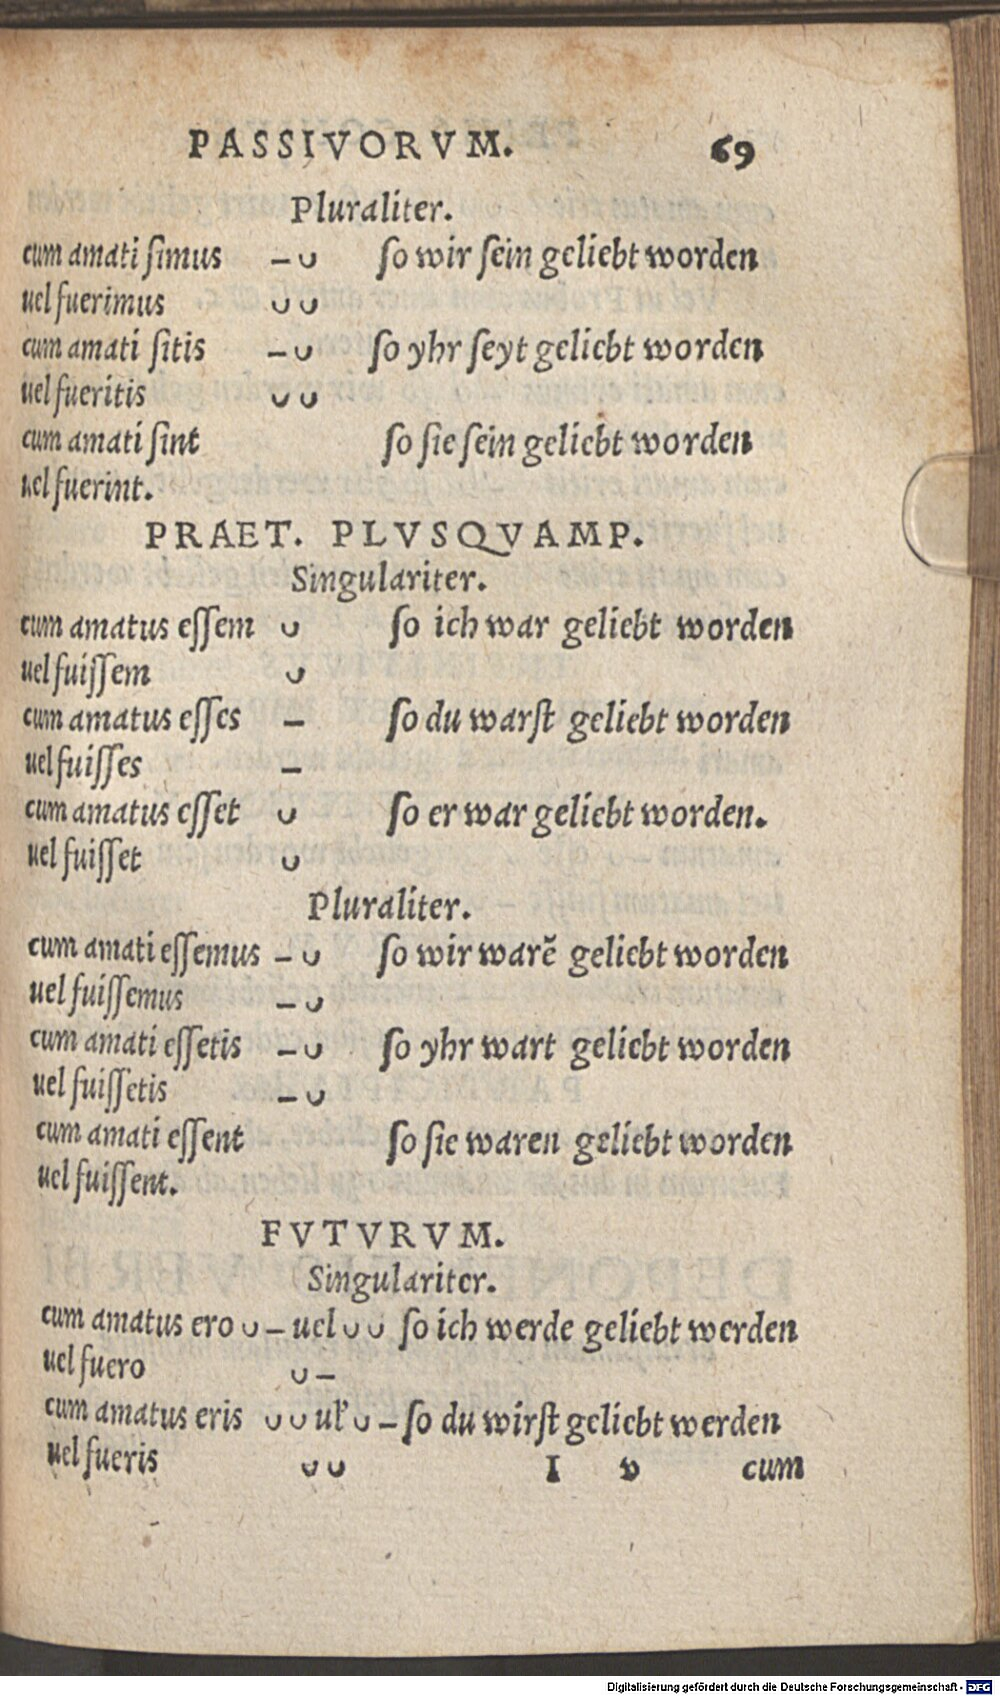 PASSIVORVM. 69
Pluraliter.
cum amati ſimus – ᴗ ſo wir ſein geliebt worden
uel fuerimus ᴗ ᴗ
cum amati ſitis – ᴗ ſo yhr ſeyt geliebt worden
uel fueritis ᴗ ᴗ
cum amati ſint ſo ſie ſein geliebt worden
uel fuerint.
PRAET. PLVSQVAMP.
Singulariter.
cum amatus eſſem ᴗ ſo ich war geliebt worden
uel fuiſſem ᴗ
cum amatus eſſes – ſo du warſt geliebt worden
uel fuiſſes –
cum amatus eſſet ᴗ ſo er war geliebt worden.
uel fuiſſet ᴗ
Pluraliter.
cum amati eſſemus – ᴗ ſo wir warē geliebt worden
uel fuiſſemus – ᴗ
cum amati eſſetis – ᴗ ſo yhr wart geliebt worden
uel fuiſſetis – ᴗ
cum amati eſſent ſo ſie waren geliebt worden
uel fuiſſent.
FVTVRVM.
Singulariter.
cum amatus ero ᴗ – uel ᴗ ᴗ ſo ich werde geliebt werden
uel fuero ᴗ –
cum amatus eris ᴗ ᴗ ul' ᴗ – ſo du wirſt geliebt werden
uel fueris ᴗ ᴗ I v cum
Digitalisierung gefördert durch die Deutsche Forschungsgemeinschaft - DFG